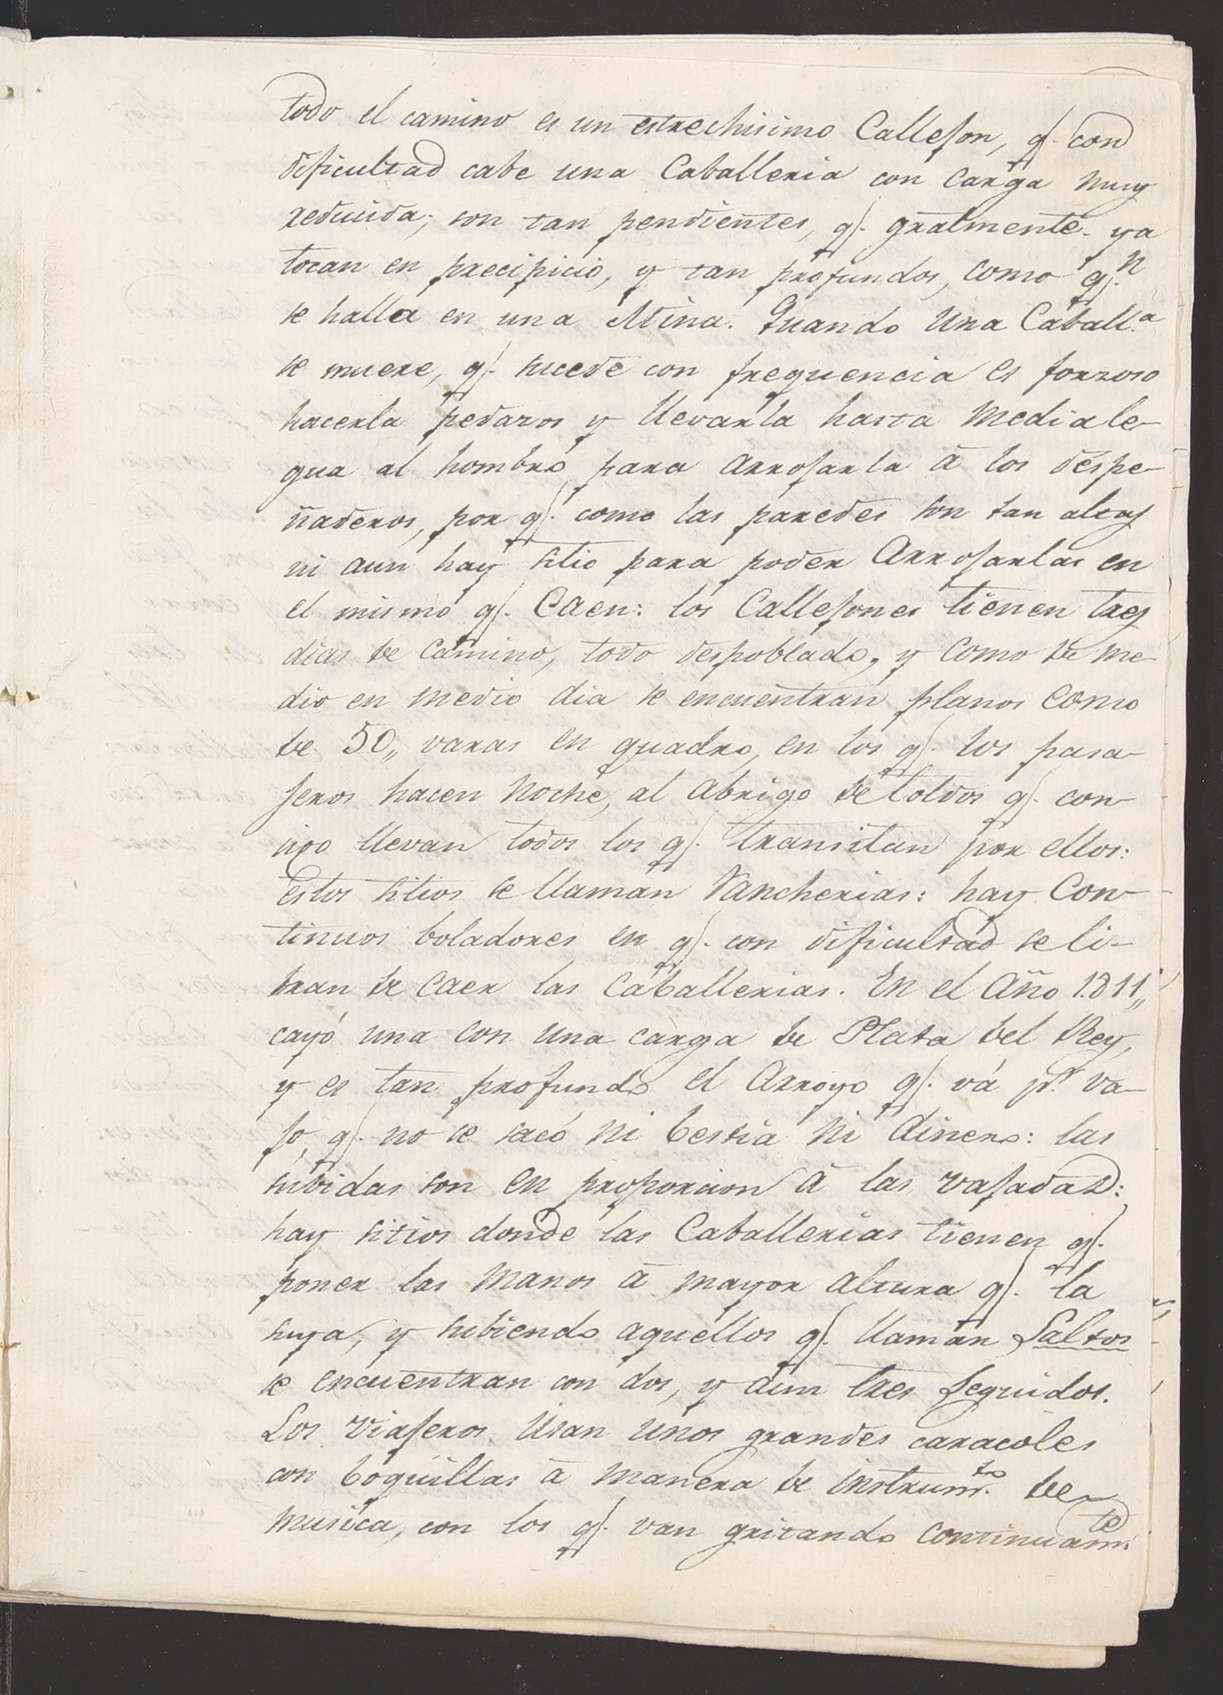 todo el camino es un estrechisimo Callejon, q.e con
dificultad cabe una Caballeria con carga muy
reducida; son tan pendientes, q.e gralmente. ya
tocan en precipicio, y tan profundos, como q.n
se halla en una Mina. Quando una Caball.a
se muere, q.e sucede con frequencia es forzoso
hacerla pedazos y llevarla hasta media le-
gua al hombro para arrojarla à los despe-
ñaderos, por q.e como las paredes son tan altas
ni aun hay sitio para poder arrojarlas en
el mismo q.e Caen: los Callejones tienen tres
dias de camino, todo despoblado, y como de me-
dio en medio dia se encuentran planos como
de 50,, varas en quadro, en los q.e los pasa-
jeros hacen noche, al abrigo de toldos q.e con-
sigo llevan todos los q.e transitan por ellos:
Estos sitios se llaman Rancherias: hay Con-
tinuos boladores en q.e con dificultad se li-
bran de caer las Caballerias. En el Año 1811,,
cayó una con una carga de Plata del Rey,
y es tan profundo el Arroyo q.e vá p.r va-
jo, q.e no se sacó ni bestia ni dinero: las
subidas son en proporcion à las vajadas:
hay sitios donde las Caballerias tienen q.e
poner las manos à mayor altura q.e la
suya, y subiendo aquellos q.e llaman Saltos
se encuentran con dos, y aun tres seguidos.
Los viajeros usan unos grandes caracoles
con boquillas à manera de instrum.tos de
musica, con los q.e van gritando continuam.te